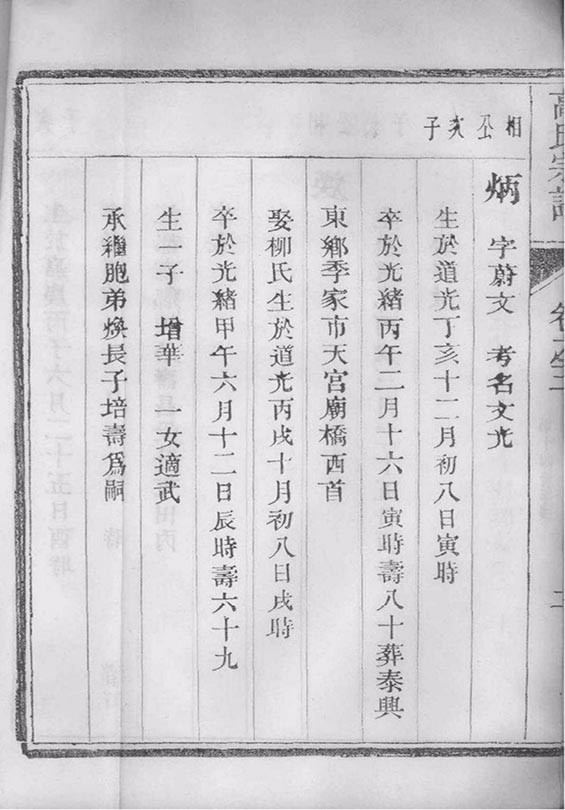 高氏宗譜
卷之二
二
相公亥子
炳 字蔚文 考名文光
生於道光丁亥十二月初八日寅時
卒於光緒丙午二月十六日寅時壽八十葬泰興
東鄉季家市天宮廟橋西首
娶柳氏生於道光丙戌十月初八日戌時
卒於光緒甲午六月十二日辰時壽六十九
生一子增華 一女適武
承繼胞弟煥長子培壽爲嗣